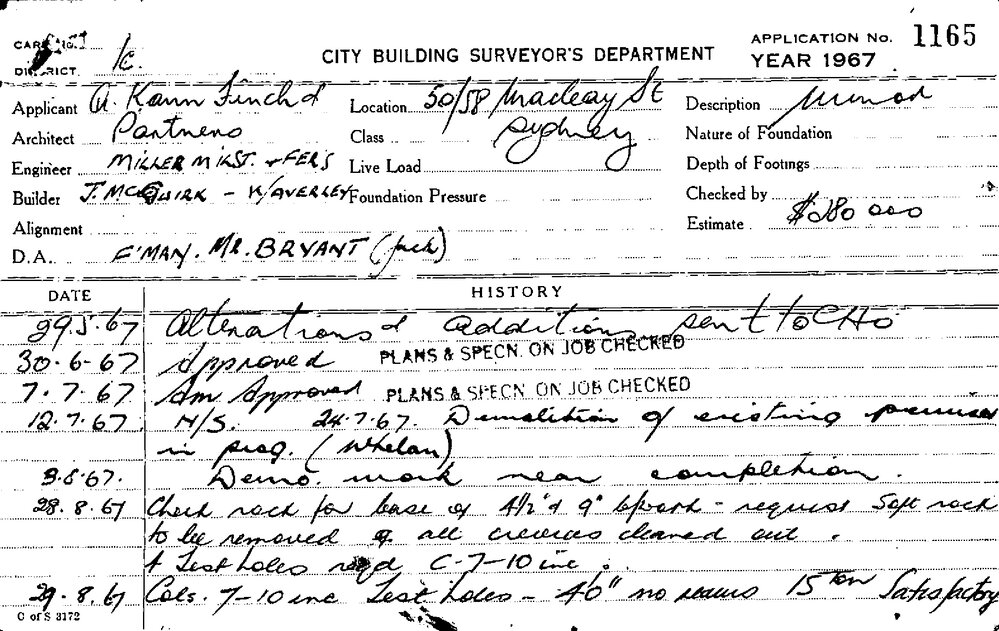 CARD No.
DISTRICT /c.
CITY BUILDING SURVEYOR'S DEPARTMENT
APPLICATION No. 1165
YEAR 1967
Applicant A. Kann Finch & Location 50/58 Macleay St Description
Architect Partners Class Sydney Nature of Foundation
Engineer MILLER MILST. + FER'S Live Load Depth of Footings
Builder J. McGUIRK - WAVERLEY Foundation Pressure Checked by
Alignment Estimate $280 000
D.A. F'MAN. MR. BRYANT (Jack)
DATE HISTORY
29.5.67 Alterations & additions sent to CHO
30.6.67 Approved PLANS & SPECN. ON JOB CHECKED
7.7.67 Am Approved PLANS & SPECN. ON JOB CHECKED
12.7.67 N/S. 24.7.67. Demolition of existing premises
in prog. (Whelan)
3.8.67. Demo. work near completion.
28.8.67 Check rock for base of 4½" & 9" b/work - request soft rock
to be removed & all crevices cleaned out.
4 Test holes reqd C-7-10 inc.
29.8.67 Cols. 7-10 inc Test holes - 4'0" no seams 15 Ton Satisfactory
C of S 3172